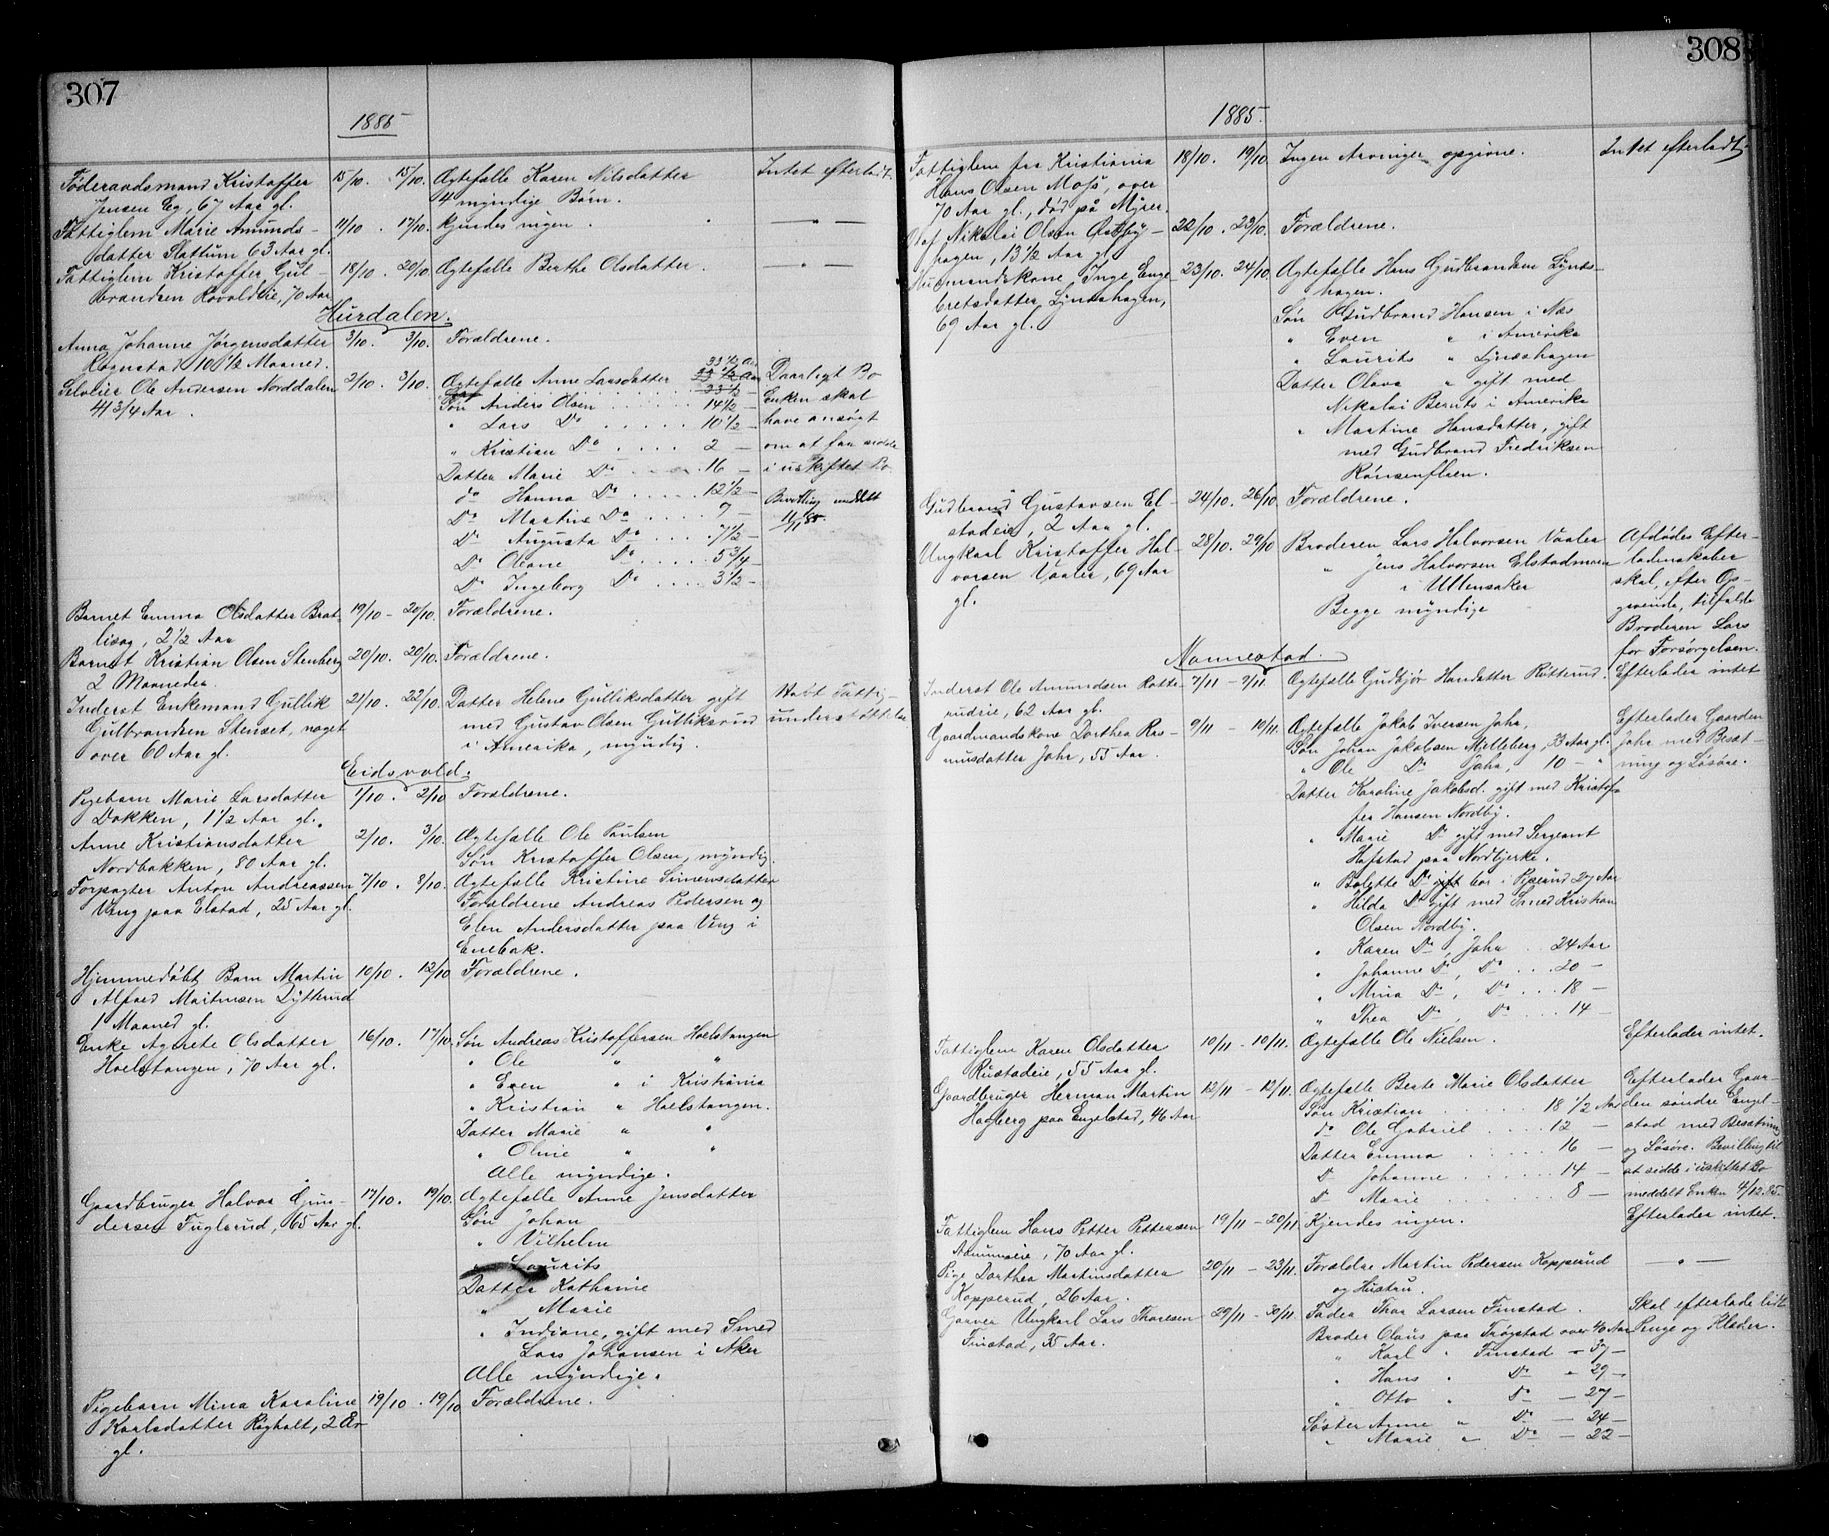 307
1885
Föderaadsmand Kristoffer 15/10. 15/10. Ægtefælle Karen Nilsdatter Intet efterladt.
Jensen Eg, 67 Aar gl. 4 myndige Børn.
Fattiglem Marie Amunds- 11/10. 17/10. Kjendes ingen. — " —
datter Slattum 63 Aar gl.
Fattiglem Kristoffer Gul- 18/10. 20/10. Ægtefælle Berthe Olsdatter. — " —
brandsen 70 Aar
Hurdalen.
Anna Johanne Jörgensdatter 3/10. 3/10. Forældrene.
Rognstad 10 1/2 Maaned.
Selveier Ole Andersen Norddalen 2/10. 3/10. Ægtefælle Anne Larsdatter 33 1/2 Aar Daarligt Bo
41 3/4 Aar. Søn Anders Olsen 14 1/2 — Enken skal
" Lars Do 10 1/2 — have ansøgt
" Kristian Do 2 — om at faa sidde
Datter Marie Do 16 — i uskiftet Bo
do Hanna Do 12 1/2 — Bevilling meddelt
Do Martine Do 9 — 11/11 85.
Do Augusta Do 7 1/2 —
Do Oleane Do 5 3/4 —
Do Ingeborg Do 3 1/2 —
Barnet Emma Olsdatter Brat- 19/10 - 20/10. Forældrene.
lisag, 2 1/2 Aar
Barnet Kristian Olsen Stenberg 20/10. 20/10. Forældrene.
2 Maaneder.
Inderst Enkemand Gullik 21/10. 22/10. Datter Helene Gulliksdatter gift Havt Fattig-
Gulbrandsen Stenset, noget med Gustav Olsen Gulliksrud understøttelse
over 60 Aar gl. i Amerika, myndig.
Eidsvold.
Pigebarn Marie Larsdatter 1/10. 2/10 Forældrene.
Dokken, 1 1/2 Aar gl.
Anne Kristiansdatter 2/10. 3/10. Ægtefælle Ole Paulsen
Nordbakken, 80 Aar gl. Søn Kristoffer Olsen, myndig.
Forpagter Anton Andreassen 7/10. 8/10. Ægtefælle Kristine Simensdatter
Veng paa Elstad, 25 Aar gl. Forældrene Andreas Pedersen og
Elen Andersdatter paa Veng i
Enebak.
Hjemmedöbt Barn Martin 10/10. 12/10 Forældrene.
Alfred Martinsen Dytterud
1 Maaned gl.
Enke Agnete Olsdatter 16/10. 17/10. Søn Andreas Kristoffersen Hoelstangen
Hoelstangen, 70 Aar gl. " Ole " "
" Even " i Kristiania
" Kristian " Hoelstangen.
Datter Marie " "
" Oline " "
Alle myndige.
Gaardbruger Halvor Gun- 17/10. 19/10. Ægtefælle Anne Jensdatter
dersen Fuglerud, 65 Aar gl. Søn Johan
" Vilhelm
" Laurits
Datter Kathrine
" Marie
" Indiane, gift med Smed
Lars Johansen i Aker
Alle myndige.
Pigebarn Mina Karoline 19/10. 19/10 Forældrene.
Karlsdatter Røgholt, 2 Aar
gl.
308
1885.
Fattiglem fra Kristiania 18/10. 19/10. Ingen Arvinger opgivne. Intet efterladt.
Hans Olsen Moss, over
70 Aar gl., död på Myrer.
Olaf Nikolai Olsen Østby- 22/10. 23/10. Forældrene.
hagen, 13 1/2 Aar gl.
Husmandskone Inge Enge- 23/10. 24/10. Ægtefælle Hans Gudbrandsen Lynæs-
bretsdatter Lynæshagen, hagen.
69 Aar gl. Søn Gudbrand Hansen i Næs
" Even " i Amerika
" Laurits " Lynæshagen
Datter Olava " gift med
Nikolai Bernts i Amerika
" Martine Hansdatter, gift
med Gudbrand Fredriksen
Rönsenflaen.
Gudbrand Gustavsen El- 24/10. 26/10. Forældrene.
stadeie, 2 Aar gl.
Ungkarl Kristoffer Hal- 28/10. 29/10 Broderen Lars Halvorsen Vaaler Afdødes Efter-
vorsen Vaaler, 69 Aar " Jens Halvorsen Elstadmoen ladenskaber
gl. i Ullensaker skal, efter Op-
Begge myndige givende, tilfalde
Broderen Lars
for Forsørgelsen.
Nannestad.
Inderst Ole Amundsen Rotte- 7/11 - 9/11. Ægtefælle Gudbjør Hansdatter Rotterud. Efterlader intet
rudeie, 62 Aar gl.
Gaardmandskone Dorthea Ras- 9/11 - 10/11. Ægtefælle Jakob Iversen Jahr, Efterlader Gaarden
musdatter Jahr, 55 Aar. Søn Johan Jakobsen Melleberg, 33 Aar gl. Jahr med Besæt-
" Ole Do Jahr, 10 — " ning og Løsøre.
Datter Karoline Jakobsd. gift med Kristof-
fer Hansen Nordby.
" Marie Do gift med Sergeant
Hafstad paa Nordbjerke.
" Bolette Do bor i 27 Aar
" Hilda Do gift med Smed Kristian
Olsen Nordby.
" Karen Do, Jahr 24 Aar
" Johanne Do, Do 20 —
" Mina Do, Do 18 —
" Thea Do, Do 14 —
Fattiglem Karen Olsdatter 10/11 - 10/11. Ægtefælle Ole Nielsen. Efterlader intet.
Rustadeie, 55 Aar gl.
Gaardbruger Herman Martin 12/11 - 12/11. Ægtefælle Berte Marie Olsdatter Efterlader Gaar-
Hagberg paa Engelstad, 46 Aar Søn Kristian 18 1/2 Aar den søndre Engel-
do Ole Gabriel 12 — stad med Besætning
Datter Emma 16 — og Løsøre. Bevilling til
D Johanne 14 — at sidde i uskiftet Bo
D Marie 8 — meddelt Enken 4/12 85.
Fattiglem Hans Petter Pettersen 19/11 - 20/11. Kjendes ingen. Efterlader intet.
70 Aar gl.
Pige Dorthea Martinsdatter 20/11 - 23/11. Forældre Martin Pedersen Kopperud — " —
Kopperud, 26 Aar. og Hustru.
Garver Ungkarl Lars Thoresen 29/11 - 30/11. Fader Thor Larsen Finstad. Skal efterlade lidt
Finstad, 35 Aar. Broder Olaus paa Trøgstad over 40 Aar Penge og Klæder.
" Karl " Finstad - 37 —
" Hans " Do - 29 —
" Otto " Do — 27 —
Søster Anne " Do — 24 —
" Marie " Do — 22 —